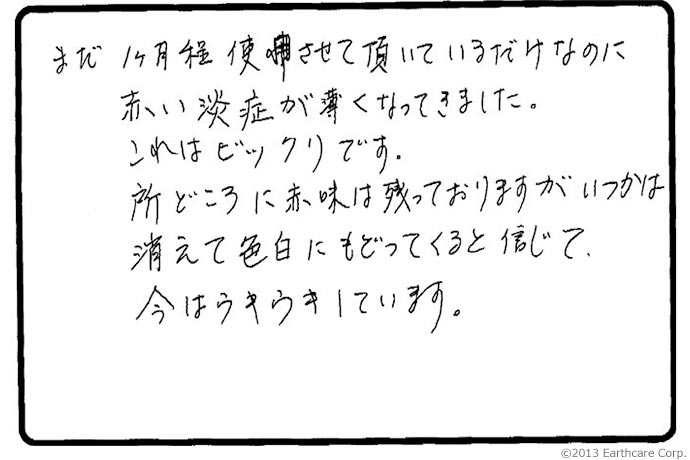 まだ 1ヶ月程使用させて頂いているだけなのに
赤い淡症が薄くなってきました。
これはビックリです。
所どころに赤味は残っておりますがいつかは
消えて色白にもどってくると信じて、
今はウキウキしています。
©2013 Earthcare Corp.